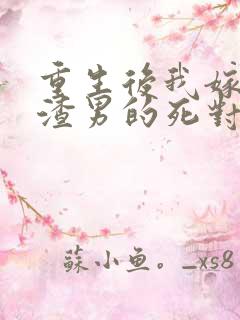 重生後我嫁
渣男的死對
蘇小魚。_xs8